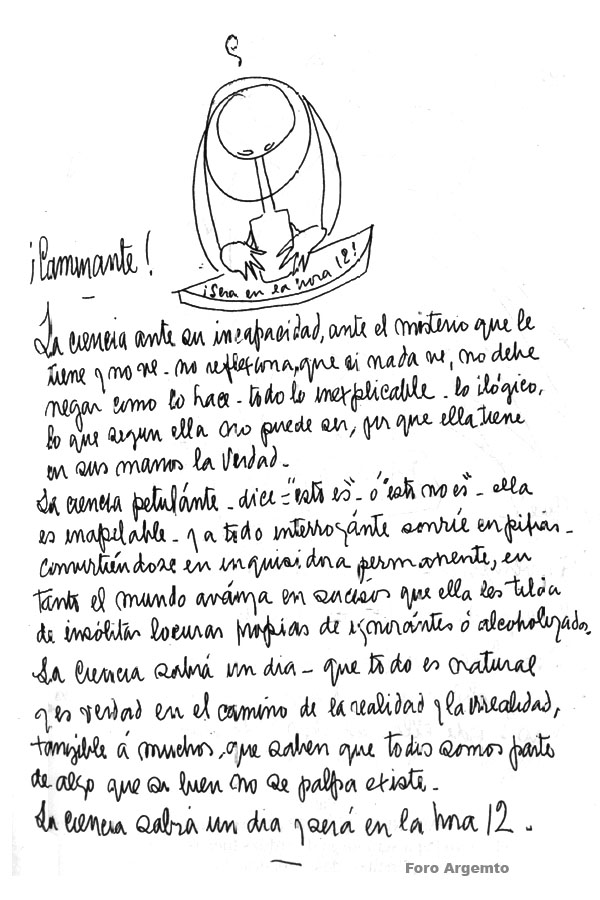 ¡Será en la hora 12!
¡Caminante!
La ciencia ante su incapacidad, ante el misterio que le
tiene y no ve - no reflexiona, que si nada ve, no debe
negar como lo hace - todo lo inexplicable - lo ilógico,
lo que segun ella no puede ser, por que ella tiene
en sus manos la Verdad -
La ciencia petulánte - dice = "esto es" - ó "esto no es" - ella
es inapelable - y a todo interrogánte sonrié en pifias -
convirtiéndose en inquisidora permanente, en
tanto el mundo avánza en sucésos que ella les tilda
de insólitas locuras propias de ignorántes ó alcoholizados.
La Ciencia sabrá un dia - que todo es natural
y es verdad en el camino de la realidad y la irrealidad,
tangible á muchos, que saben que todos somos parte
de algo que si bien no se palpa existe -
La ciencia sabrá un dia y será en la hora 12 -
Foro Argemto